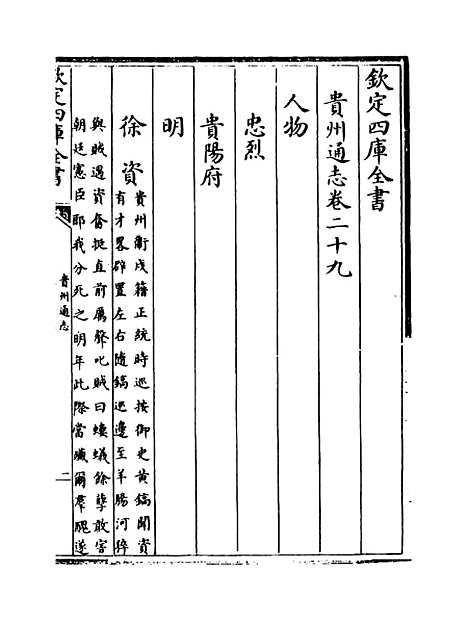 欽定四庫全書
貴州通志卷二十九
人物
忠烈
貴陽府
明
徐資
貴州衛戍籍正統時巡按御史黄鎬聞資
有才畧辟置左右隨鎬巡邊至羊腸河猝
與賊遇資奮挺直前厲聲叱賊曰螻蟻餘孽敢害
朝廷憲臣耶我分死之明年此際當殲爾羣醜遂
欽定四庫全書
貴州通志
二